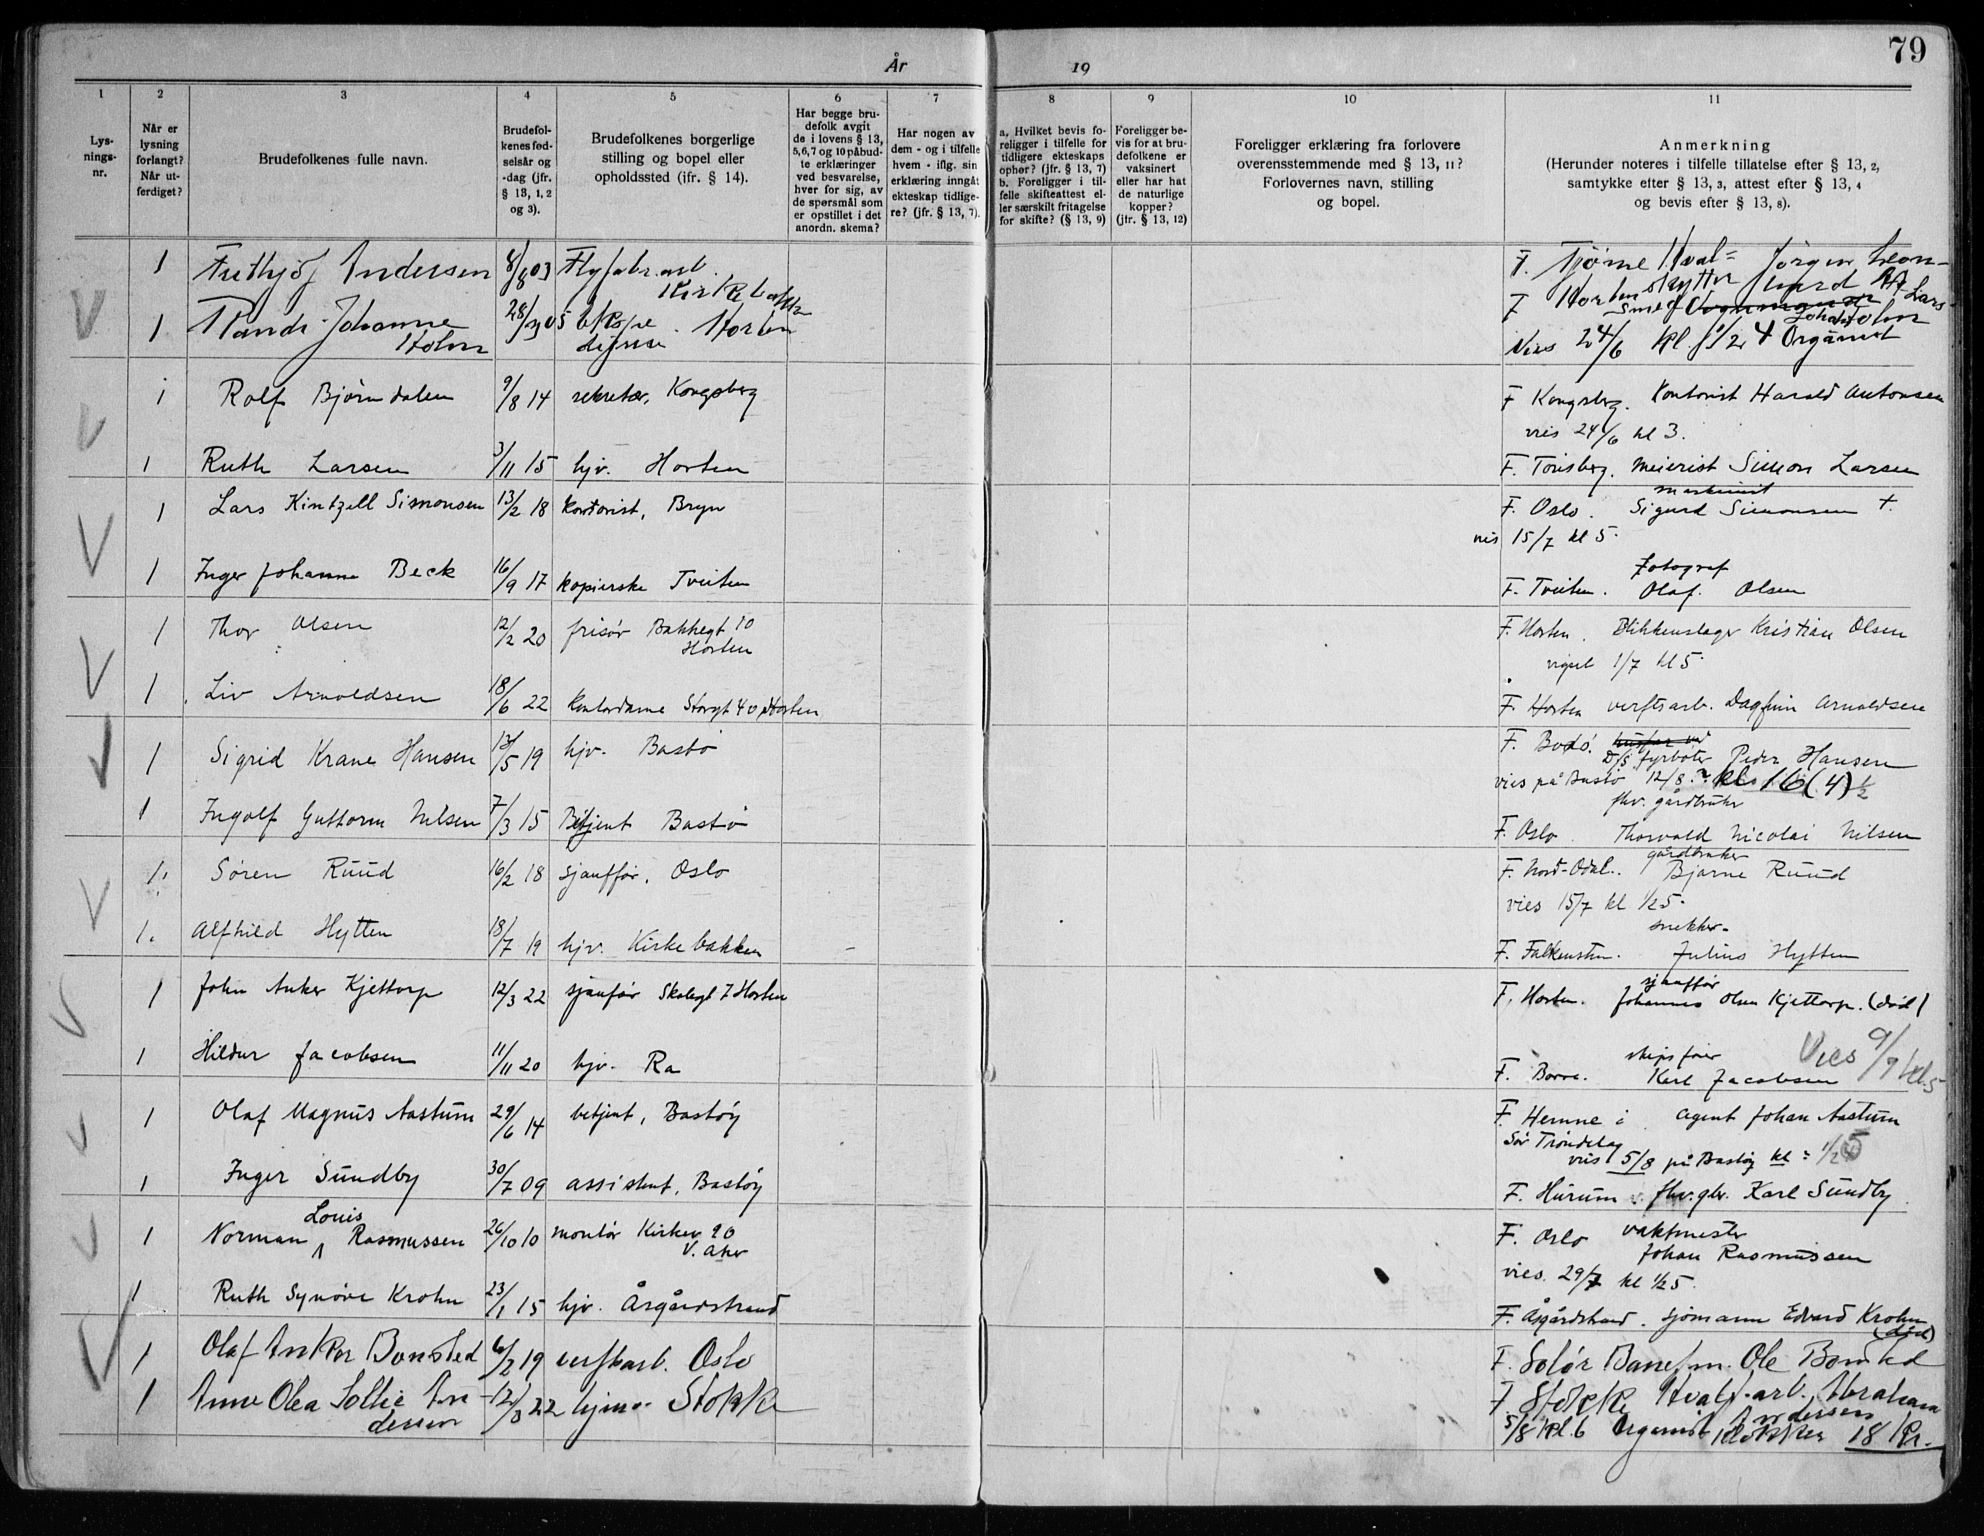 79
År 19
1 2 3 4 5 6 7 8 9 10 11
Lys-
nings-
nr.
Når er
lysning
forlangt?
Når ut-
ferdiget?
Brudefolkenes fulle navn.
Brudefol-
kenes fød-
selsår og
-dag (jfr.
§ 13, 1, 2
og 3).
Brudefolkenes borgerlige
stilling og bopel eller
opholdssted (ifr. § 14).
Har begge bru-
defolk avgit
de i lovens § 13,
5,6,7 og 10 påbud-
te erklæringer
ved besvarelse,
hver for sig, av
de spørsmål som
er opstillet i det
anordn. skema?
Har nogen av
dem - og i tilfelle
hvem - iflg. sin
erklæring inngåt
ekteskap tidlige-
re? (jfr. § 13, 7).
a. Hvilket bevis fo-
religger i tilfelle for
tidligere ekteskaps
ophør? (jfr. § 13, 7)
b. Foreligger i til-
felle skifteattest el-
ler særskilt fritagelse
for skifte? (§ 13, 9)
Foreligger be-
vis for at bru-
defolkene er
vaksinert
eller har hat
de naturlige
kopper?
(jfr. § 13, 12)
Foreligger erklæring fra forlovere
overensstemmende med § 13, 11?
Forlovernes navn, stilling
og bopel.
Anmerkning
(Herunder noteres i tilfelle tillatelse efter § 13, 2,
samtykke efter § 13, 3, attest efter § 13, 4
og bevis efter § 13, 8).
1 Frithjof Andersen 8/8 03 Flyfabr. arb. F. Tjøme Hval=
Kirkebakken skytter Jørgen
1 Johanne 28/ 05 Horten F Horten Smed
Holm
Vies 24/6 kl 1/2 4 Organist
1 Rolf Bjørndalen 9/8 14 sekretær, Kongsberg F Kongsberg. Kontorist Harald Antonsen
vies 24/6 kl 3.
1 Ruth Larsen 3/11 15 hjv. Horten F. Tønsberg. meierist Simon Larsen
1 Lars Kintzell Simonsen 13/2 18 kontorist, Bryn F. Oslo. maskinist Sigurd Simonsen †.
vies 15/7 kl 5.
1 Inger Johanne Beck 16/9 17 kopierske Tveiten F. Tveiten. Fotograf Olaf Olsen
1 Thor Olsen 12/2 20 frisør Bakkegt 10 F. Horten. Blikkenslager Kristian Olsen
Horten
vigsel 1/7 kl 5.
1 Liv Arnoldsen 18/6 22 Kontordame Storgt 40 Horten F. Horten verftsarb. Dagfinn Arnoldsen
1 Sigrid Krane Hansen 13/5 19 hjv. Bastø F. Bodø. D/S fyrbøter Peder Hansen
vies på Bastø 12/8. kl 16(4) ½
1 Ingolf Guttorm Nilsen 7/3 15 Betjent Bastø fhv. gårdbruker
F. Oslo. Thorvald Nicolai Nilsen
1 Søren Ruud 16/2 18 sjauffør, Oslo F. Nord-Odal. gårdbruker Bjarne Ruud
vies 15/7 kl ½5.
1. Alfhild Hytten 18/7 19 hjv. Kirkebakken snekker.
F. Falkensten. Julius Hytten
1 John Anker Kjettorp 12/3 22 sjaufør Skolegt 7 Horten F. Horten. sjauffør Johannes Olsen Kjettorp. (død)
Vies 9/9 kl 5
1 Hildur Jacobsen 11/11 20 hjv. Ra F. Borre. skipsfører Karl Jacobsen
1 Olaf Magnus Aastum 29/6 14 betjent, Bastøy F. Hemne i agent Johan Aastum
Sør Trøndelag
vies 5/8 på Bastøy kl = 1/2 5
1 Inger Sundby 30/7 09 assistent, Bastøy F. Hurum. fhv. gbr. Karl Sundby
1 Norman Louis Rasmussen 26/10 10 montør Kirkev 90 F. Oslo vaktmester
V. Aker Johan Rasmussen
vies. 29/7 kl ½5.
1 Ruth Synøve Krohn 23/1 15 hjv. Åsgårdstrand F. Åsgårdstrand. sjømann Edvard Krohn
(død)
1 Olaf Anker Bonsted 6/2 19 verftsarb. Oslo F. Solør Banefm. Ole Bonsted
1 Anne Olea Sollie An 12/3 22 hjmv. Stokke F Stokke Hvalf.arb. Abraham
dersen Andersen
5/8 kl. 6 Organist Klokker 18 Kr.